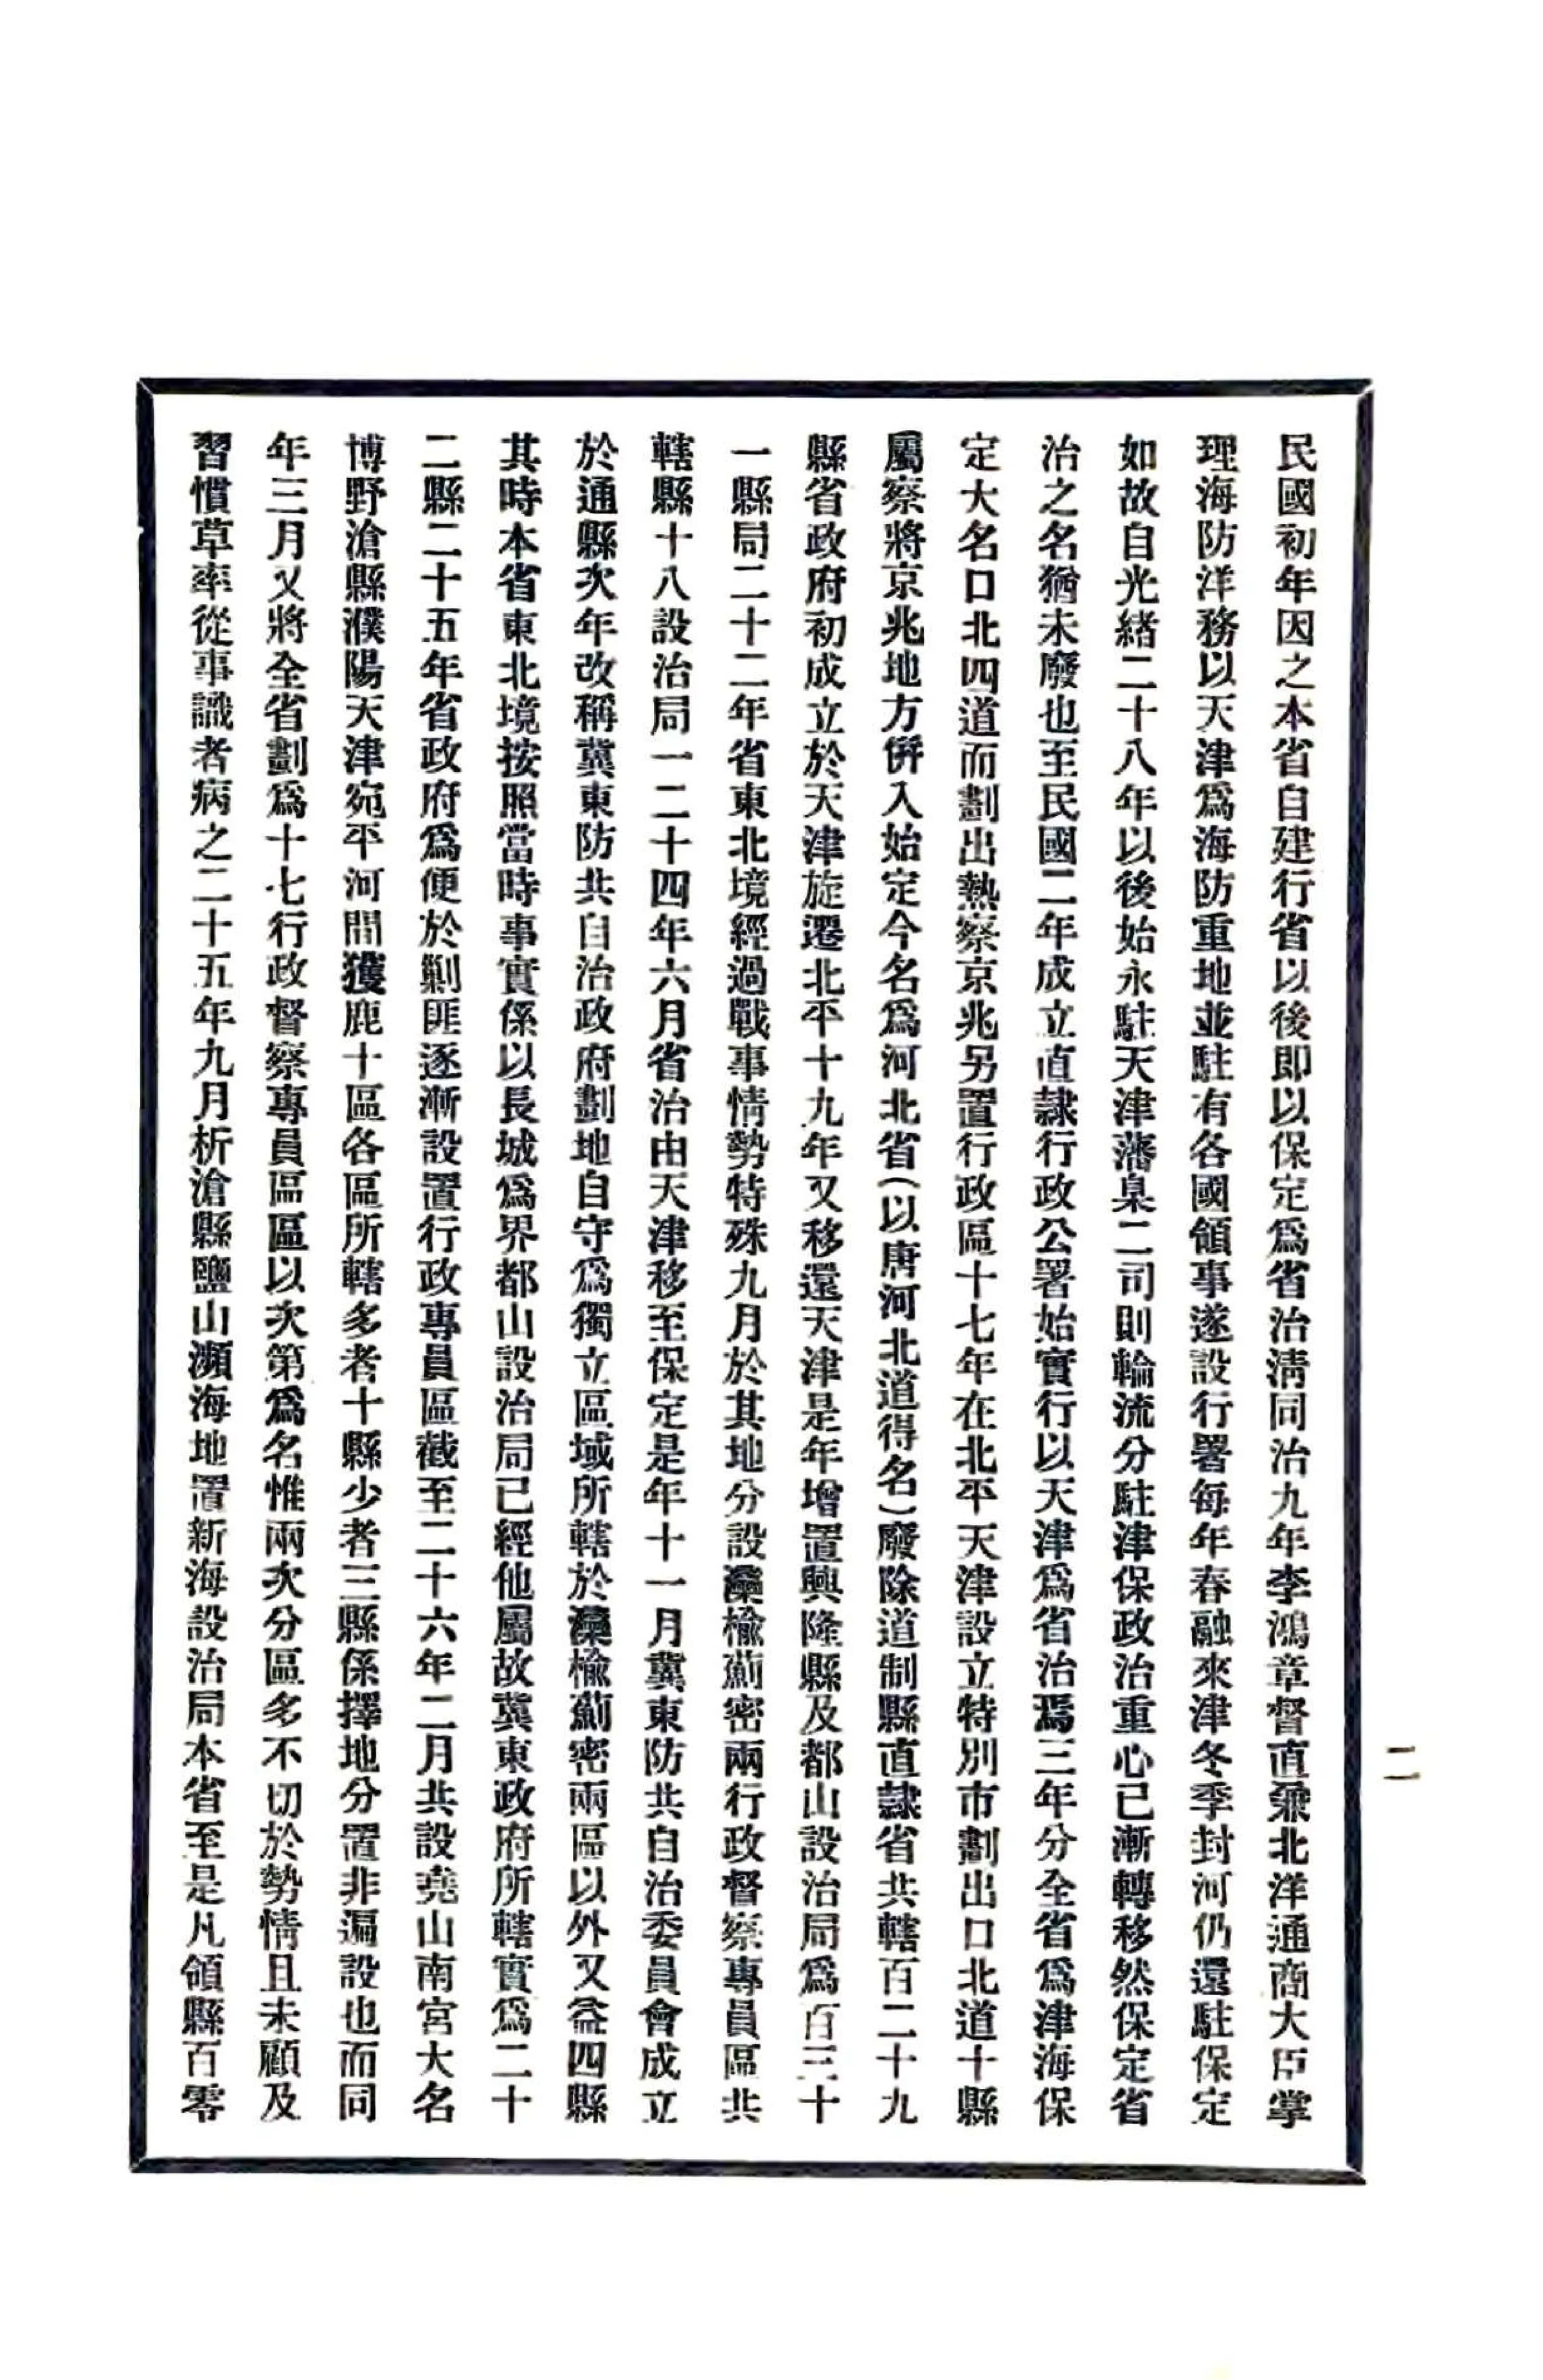 民國初年因之本省自建行省以後即以保定爲省治淸同治九年李鴻章督直兼北洋通商大臣掌
理海防洋務以天津爲海防重地並駐有各國領事遂設行署每年春融來津冬季封河仍還駐保定
如故自光緖二十八年以後始永駐天津藩臬二司則輪流分駐津保政治重心已漸轉移然保定省
治之名猶未廢也至民國二年成立直隸行政公署始實行以天津爲省治焉三年分全省爲津海保
定大名口北四道而劃出熱察京兆另置行政區十七年在北平天津設立特別市劃出口北道十縣
屬察將京兆地方併入始定今名爲河北省(以唐河北道得名)廢除道制縣直隸省共轄百二十九
縣省政府初成立於天津旋遷北平十九年又移還天津是年增置興隆縣及都山設治局爲百三十
一縣局二十二年省東北境經過戰事情勢特殊九月於其地分設灤楡薊密兩行政督察專員區共
轄縣十八設治局一二十四年六月省治由天津移至保定是年十一月冀東防共自治委員會成立
於通縣次年改稱冀東防共自治政府劃地自守爲獨立區域所轄於灤楡薊密兩區以外又益四縣
其時本省東北境按照當時事實係以長城爲界都山設治局已經他屬故冀東政府所轄實爲二十
二縣二十五年省政府爲便於剿匪逐漸設置行政專員區截至二十六年二月共設堯山南宮大名
博野滄縣濮陽天津宛平河間獲鹿十區各區所轄多者十縣少者三縣係擇地分置非遍設也而同
年三月又將全省劃爲十七行政督察專員區區以次第爲名惟兩次分區多不切於勢情且未顧及
習慣草率從事識者病之二十五年九月析滄縣鹽山瀕海地置新海設治局本省至是凡領縣百零
二